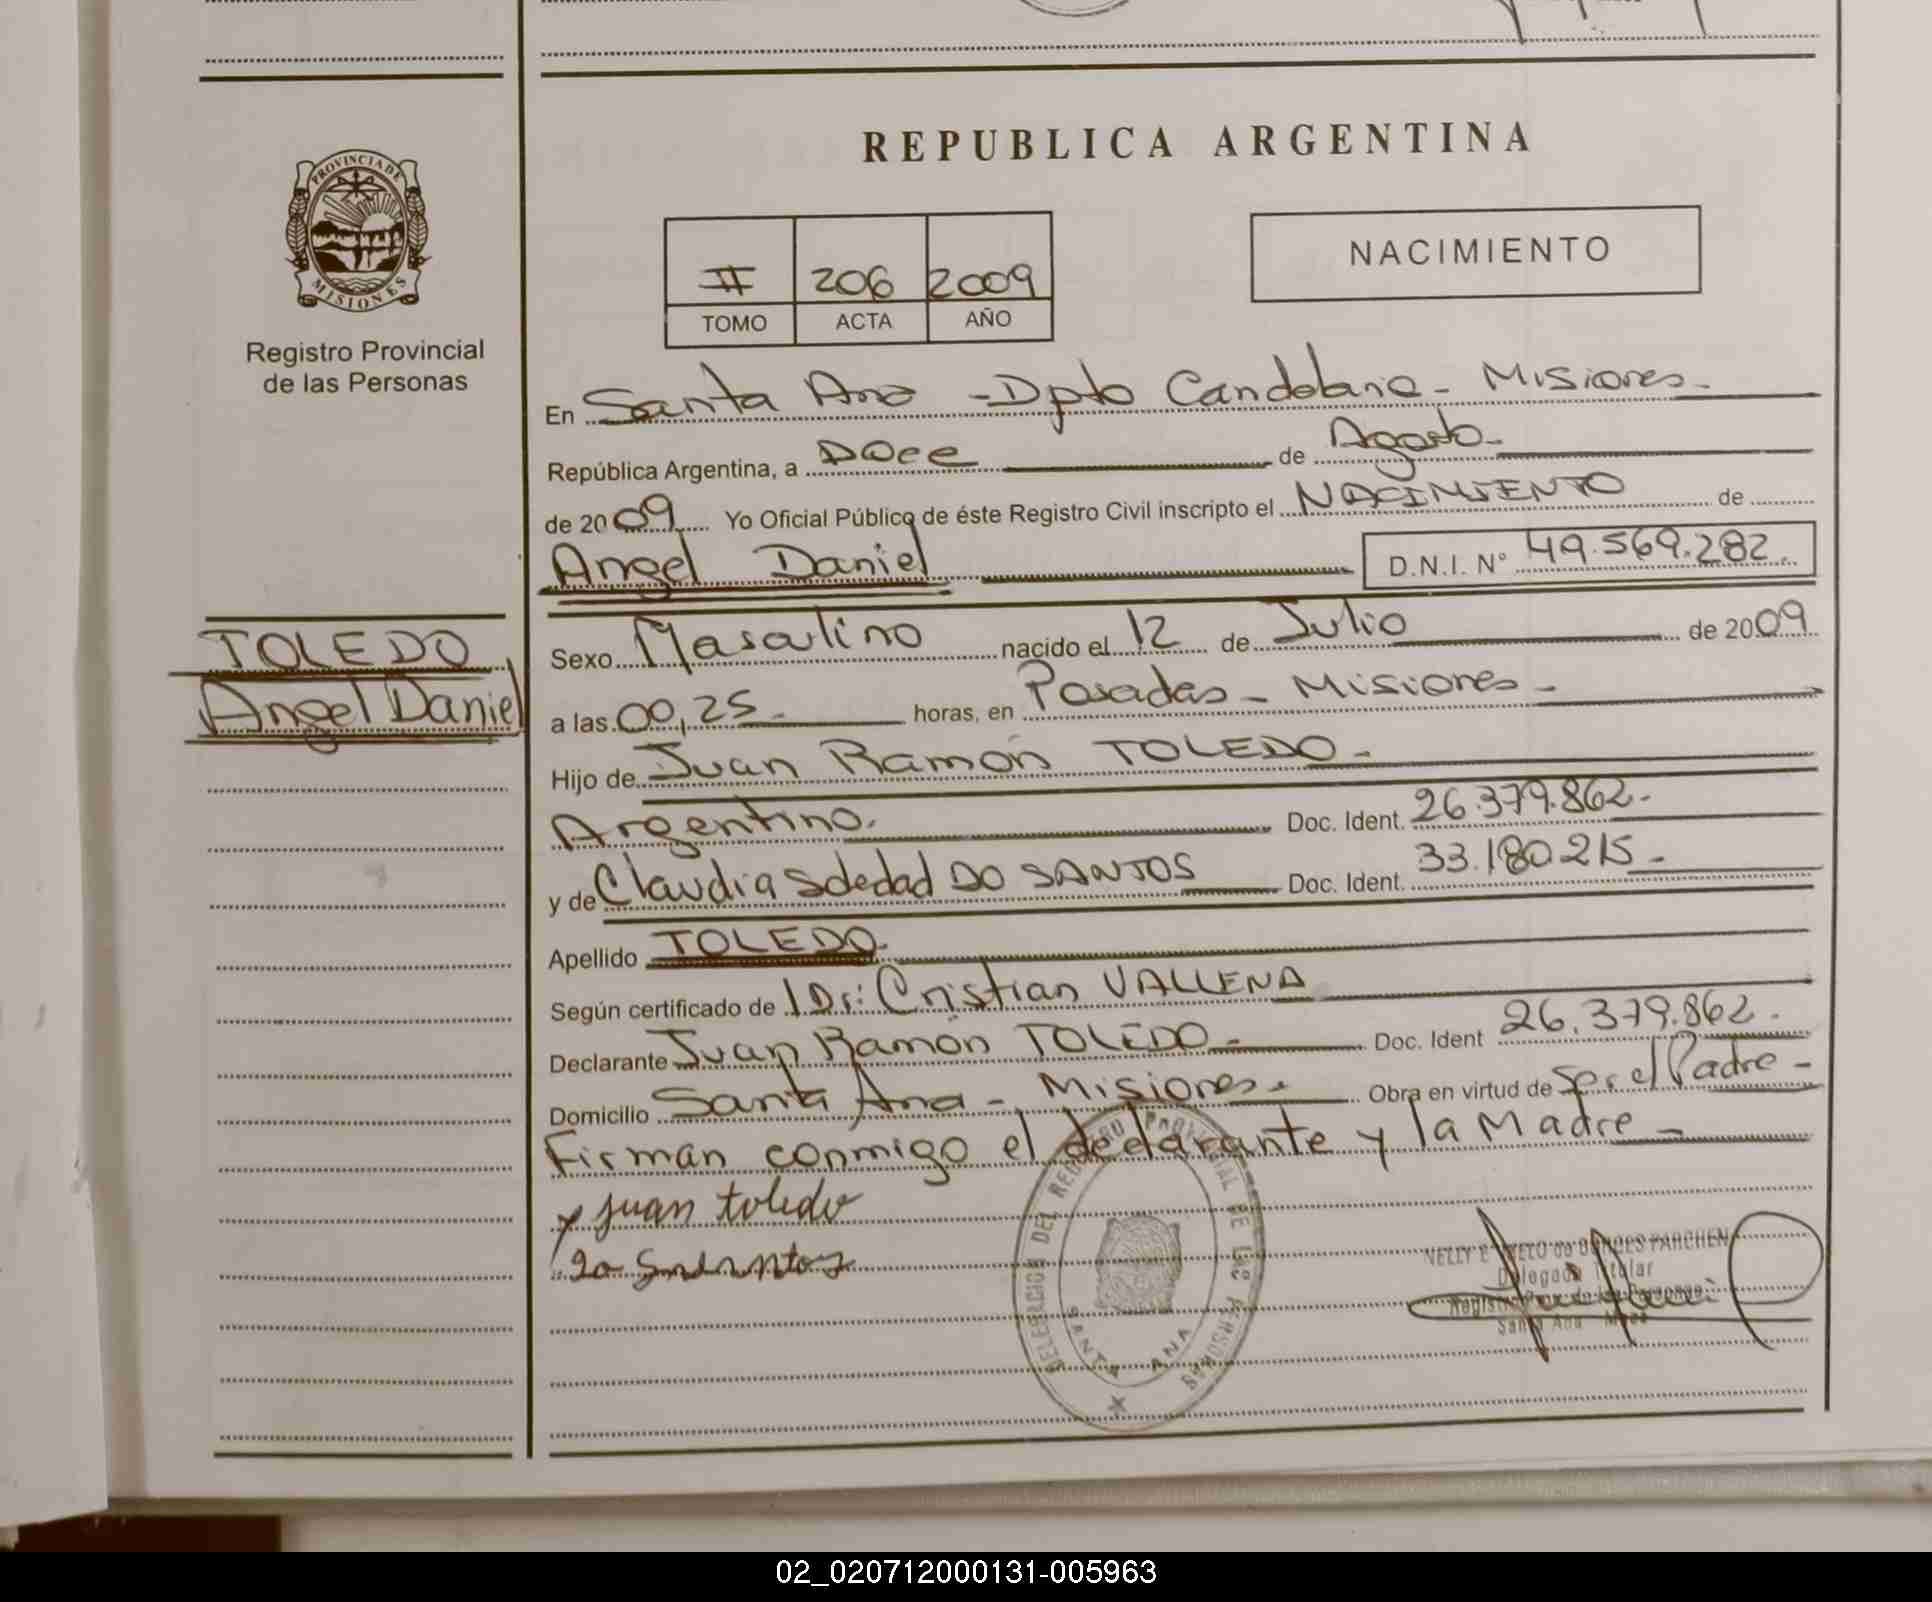 REPUBLICA ARGENTINA
PROVINCIA DE
MISIONES
Registro Provincial
de las Personas
NACIMIENTO
II 206 2009
TOMO ACTA AÑO
En Santa Ana - Dpto Candelaria - Misiones -
República Argentina, a Doce de Agosto -
de 2009 Yo Oficial Público de éste Registro Civil inscripto el NACIMIENTO de
Angel Daniel D.N.I. Nº 49.569.282.
TOLEDO
Angel Daniel
Sexo Masculino nacido el 12 de Julio de 2009
a las 00,25 - horas, en Posadas - Misiones -
Hijo de Juan Ramón TOLEDO -
Argentino. Doc. Ident. 26.379.862 -
y de Claudia Soledad DO SANTOS Doc. Ident. 33.180.215 -
Apellido TOLEDO.
Según certificado de Dr: Cristian VALLENA
Declarante Juan Ramón TOLEDO - Doc. Ident 26.379.862.
Domicilio Santa Ana - Misiones - Obra en virtud de Ser el Padre -
Firman conmigo el declarante y la Madre -
juan toledo
DELEGACION DEL REGISTRO PROVINCIAL DE LAS PERSONAS
SANTA ANA
Delegada Titular
Santa Ana
02_020712000131-005963